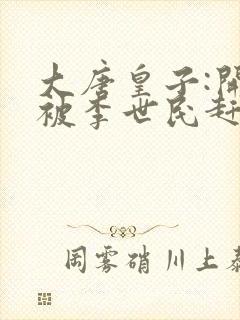 大唐皇子:開
被李世民赶
岡雾硝川上